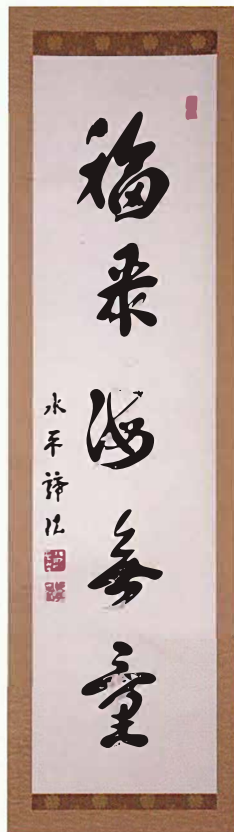 福聚海無量
永平諦法